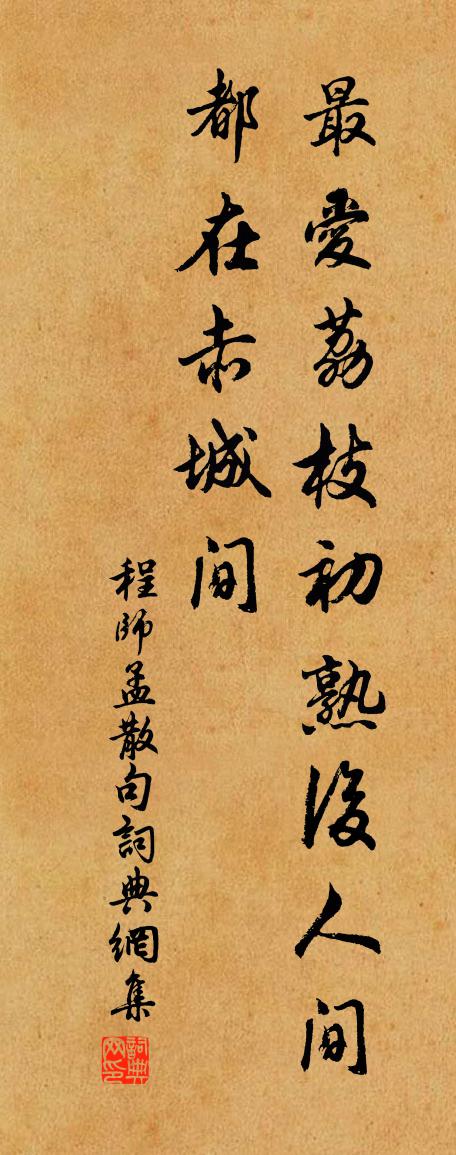 最愛荔枝初熟後人间
都在赤城间
程師孟散句詞典網集
詞典網印